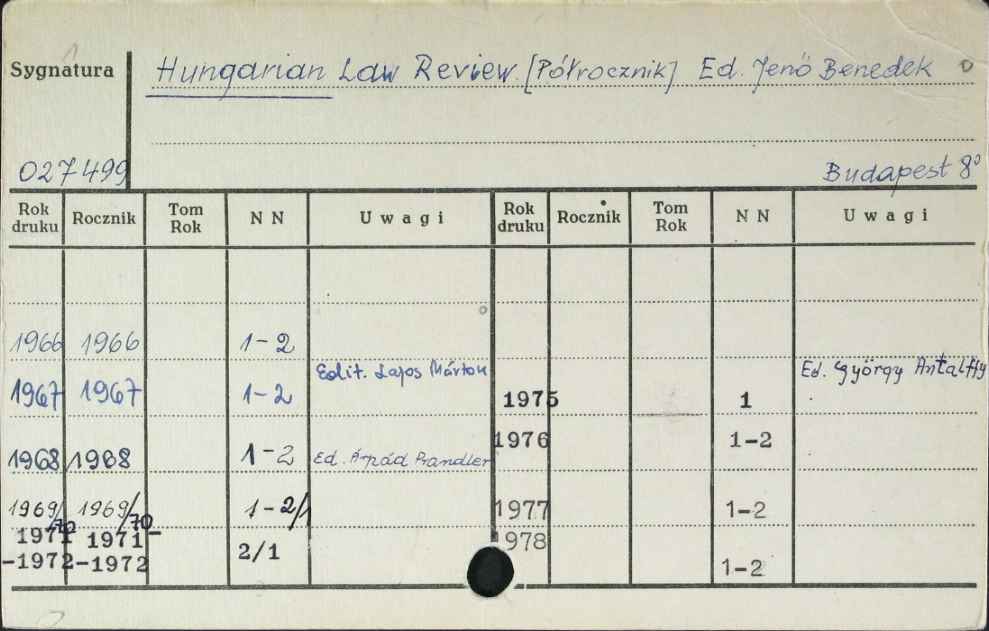 Sygnatura Hungarian Law Review. [Półrocznik] Ed. Jenő Benedek
027499 Budapest 8°
Rok druku Rocznik Tom Rok N N Uwagi Rok druku Rocznik Tom Rok N N Uwagi
1966 1966 1-2
Edit. Lajos Márton Ed. György Antalffy
1967 1967 1-2 1975 1
1976 1-2
1968 1968 1-2 Ed. Árpád Prandler
1969/70 1969/70 1-2/1 1977 1-2
1971 1971- 1978
-1972 -1972 2/1 1-2